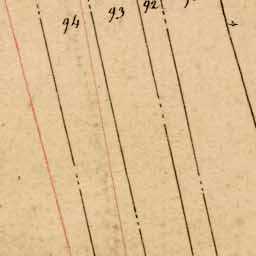 94 93 92